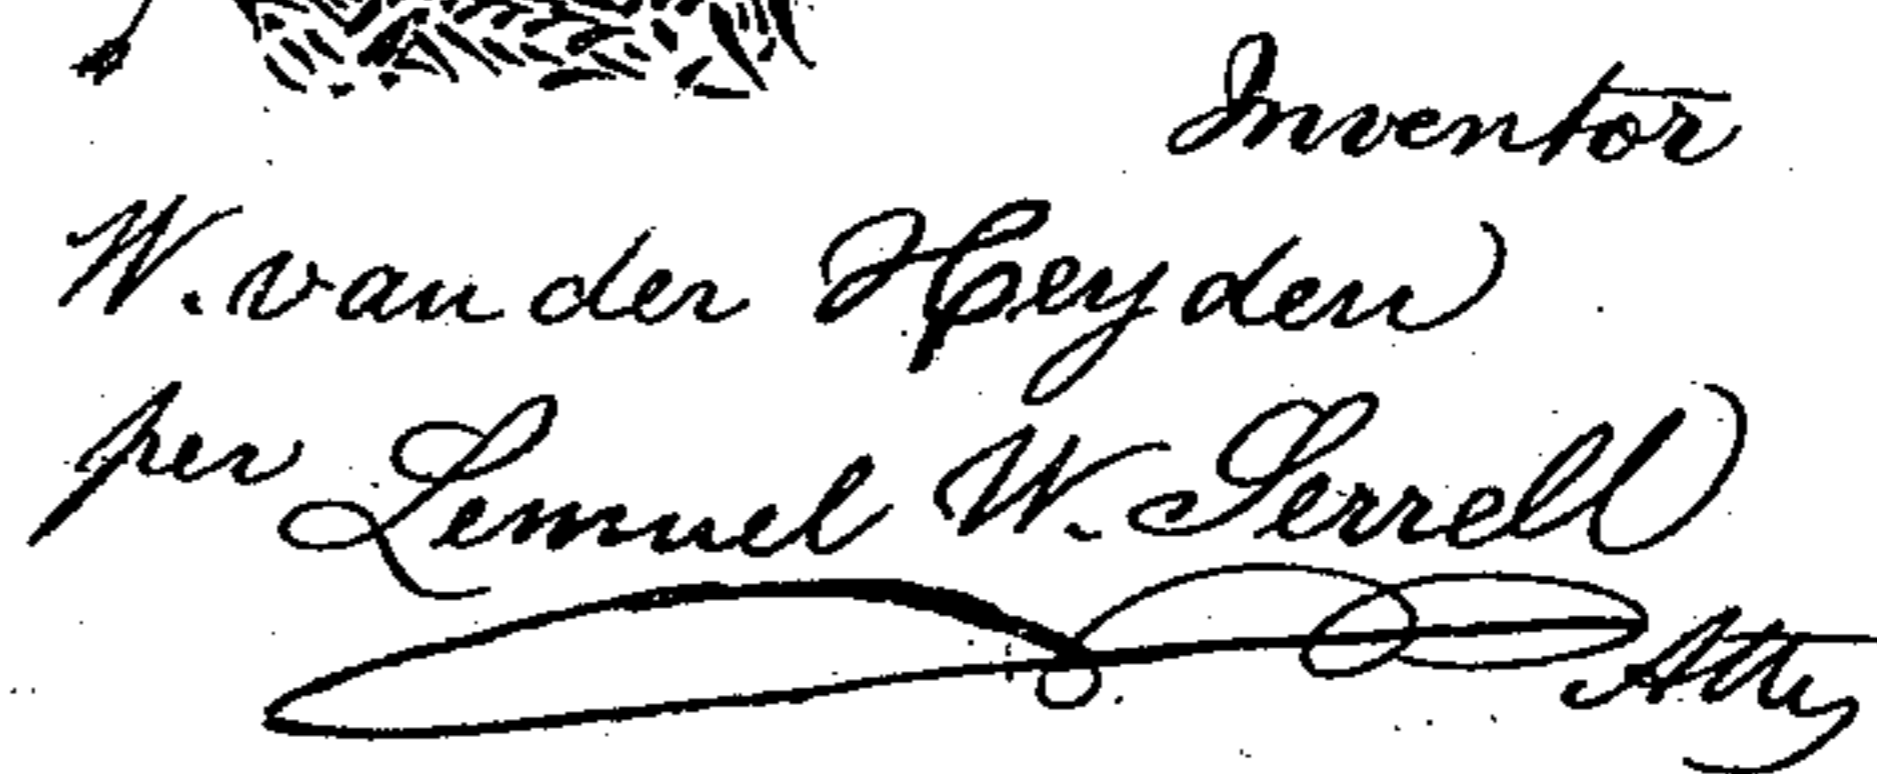 Inventor
W. van der Heyden
per Lemuel W. Serrell
Atty